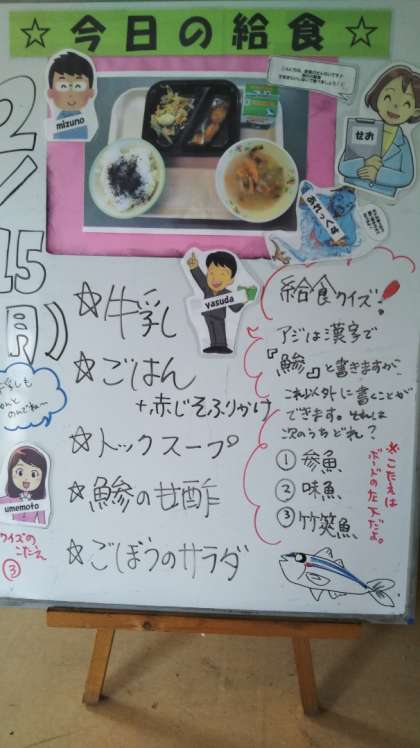 ☆今日の給食☆
mizuno
せお
あれっくす
yasuda
2/15(月)
☆牛乳
☆ごはん
+赤じそふりかけ
☆トックスープ
☆鯵の甘酢
☆ごぼうのサラダ
umemoto
クイズの
こたえ
③
給食クイズ!
アジは漢字で
『鯵』と書きますが、
これ以外に書くことが
できます。それは
次のうちどれ?
①参魚
②味魚
③竹筴魚
※こたえは
ボードの左下だよ。